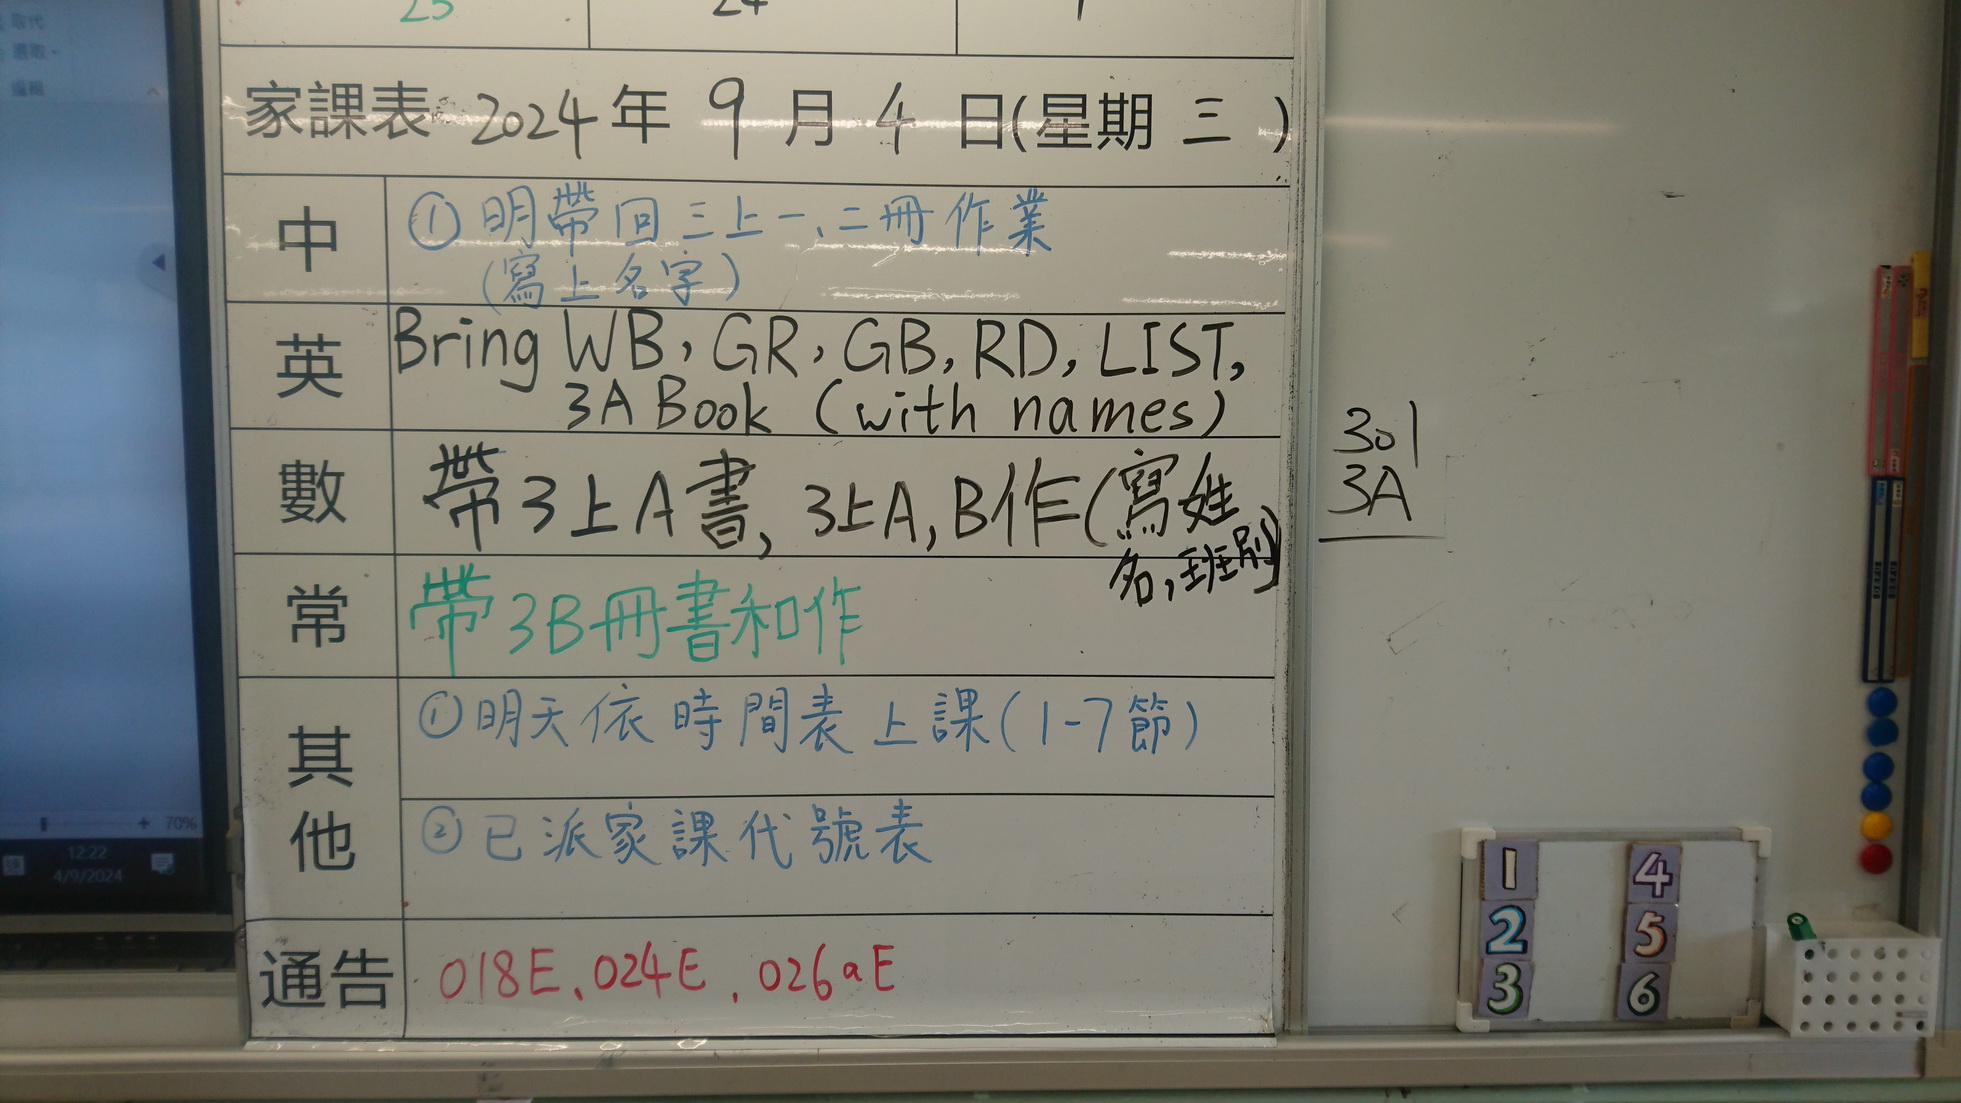 取代
選取
編輯
25
24
1
家課表 2024年 9月 4日(星期三)
中
① 明帶回三上一、二冊作業
(寫上名字)
英
Bring WB, GR, GB, RD, LIST,
3A Book (with names)
數
帶3上A書, 3上A, B作(寫姓
名, 班別)
常
帶3B冊書和作
其他
① 明天依時間表上課(1-7節)
② 已派家課代號表
通告
018E、024E、026aE
301
3A
70%
12:22
4/9/2024
1
2
3
4
5
6